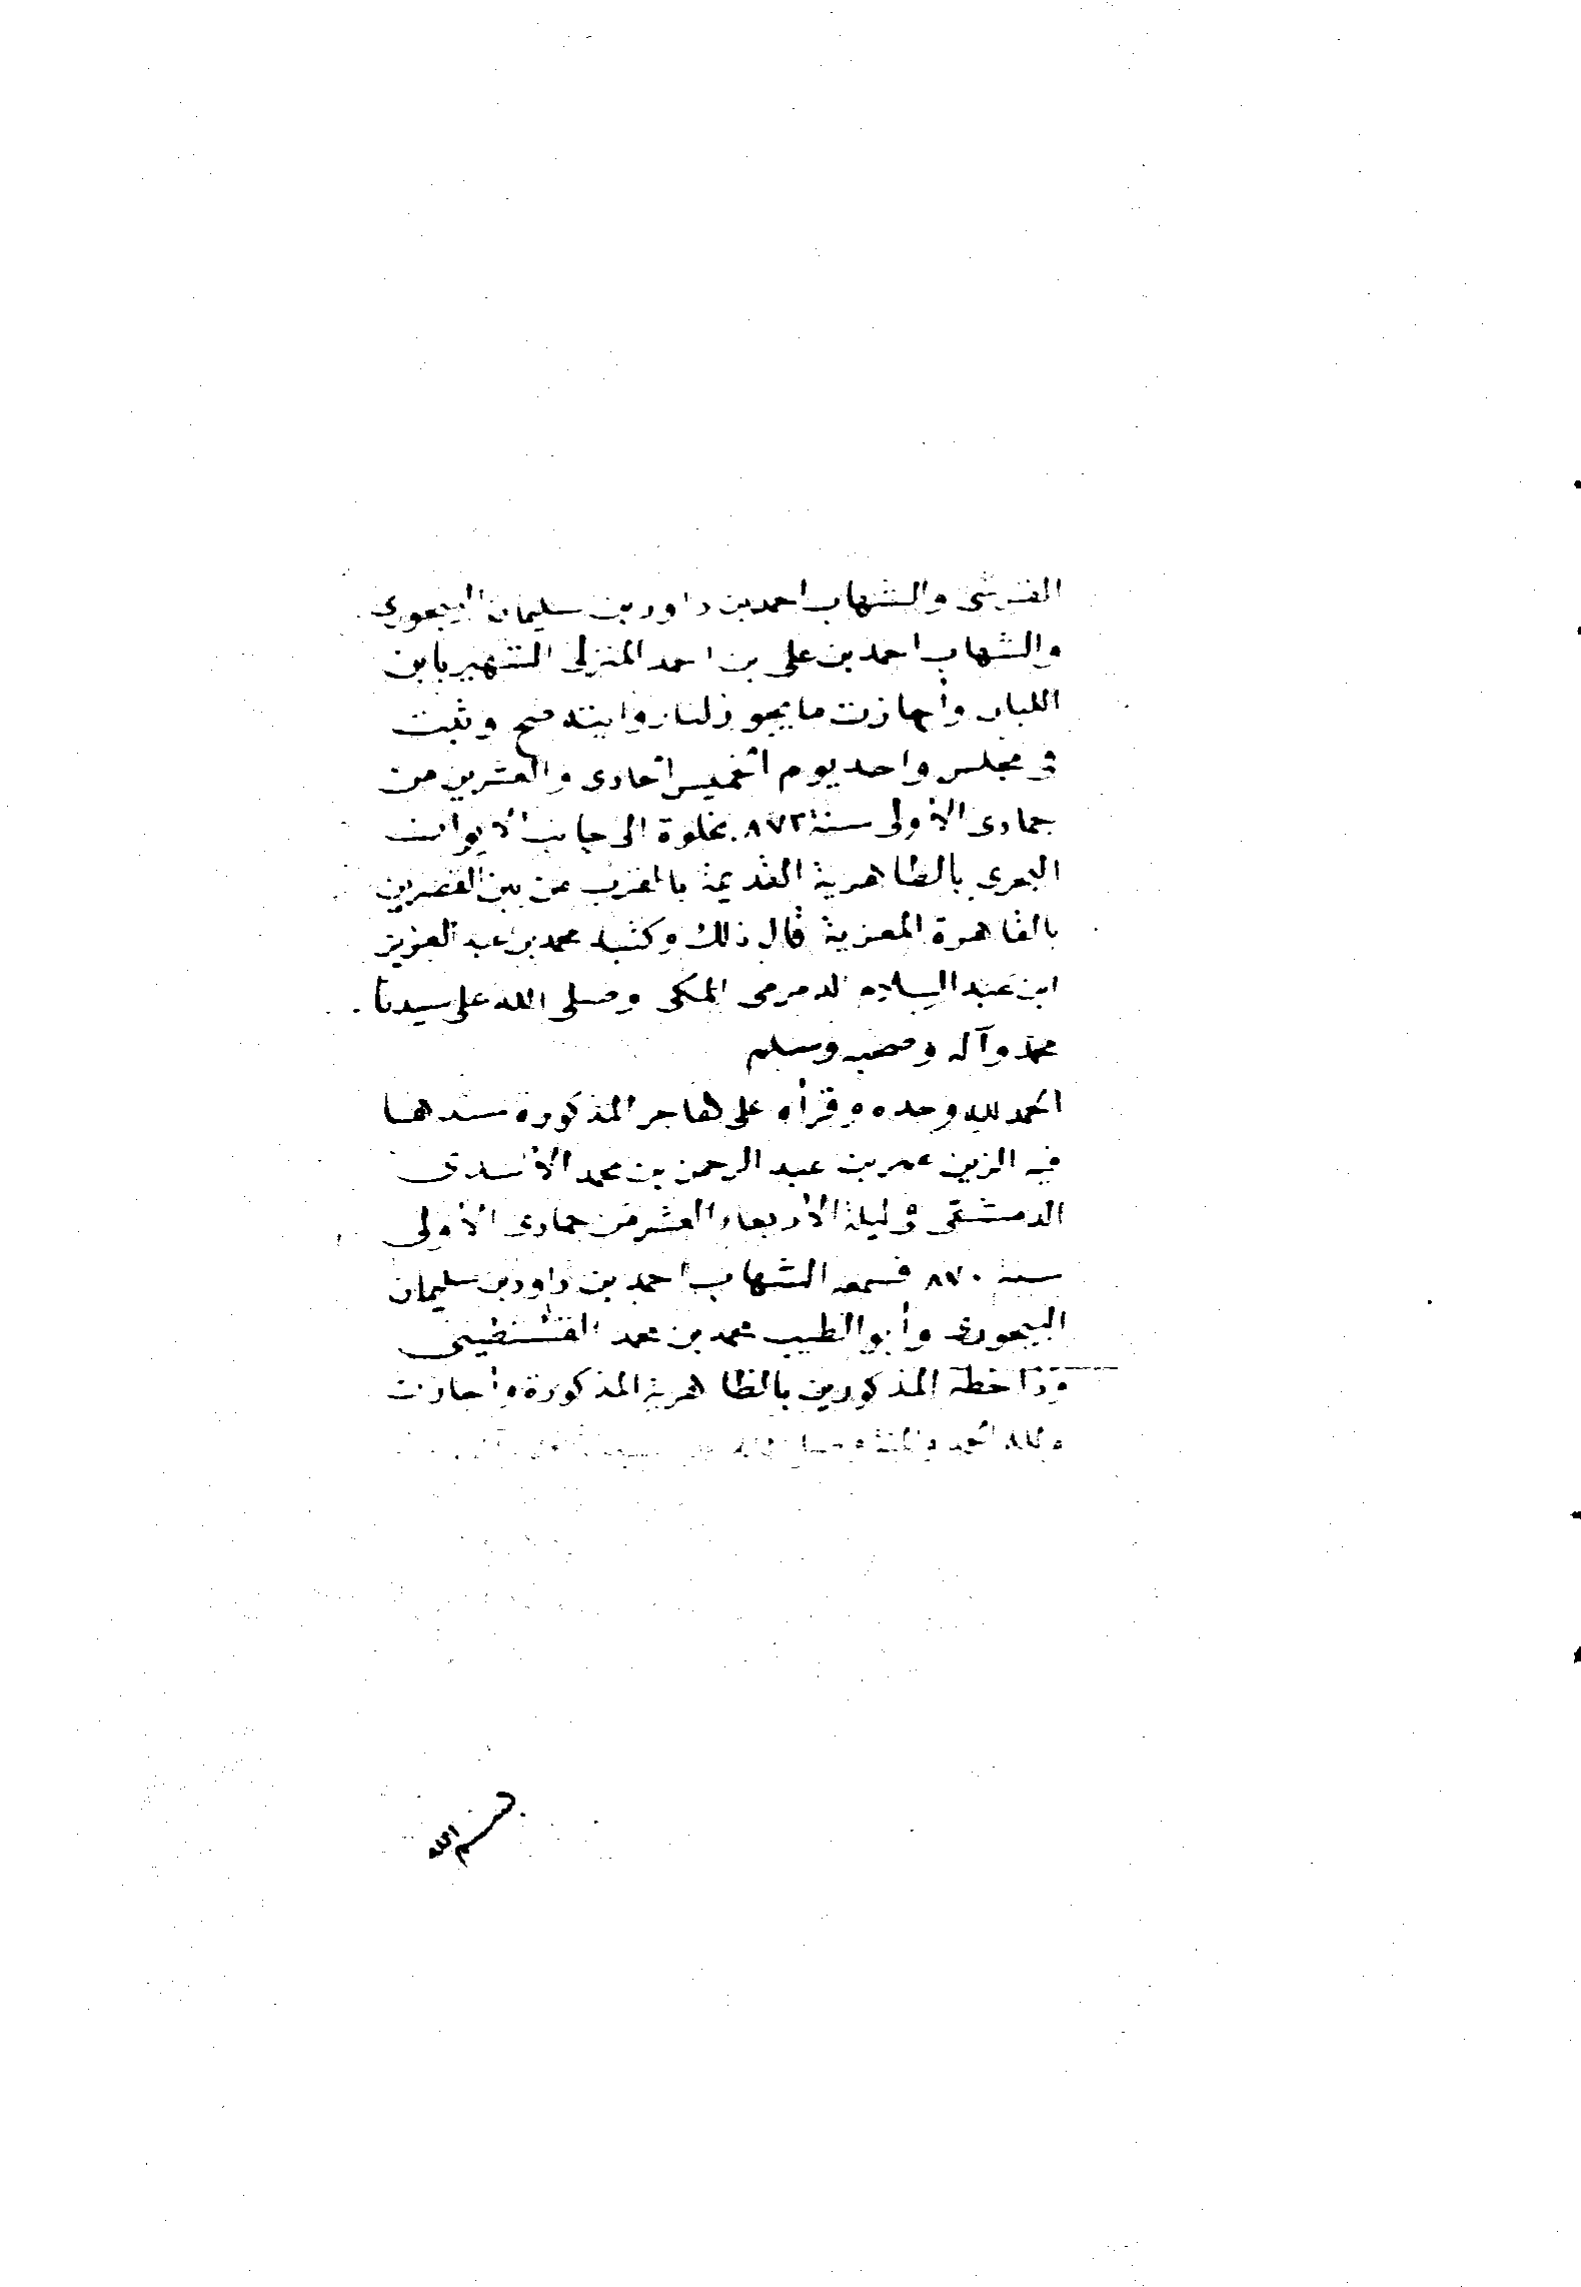 القرشى والشهاب احمد بن داود بن سليمان البيجورى
والشهاب احمد بن على بن احمد المنزلى الشهير بابن
اللبان وأجازت ما يجوز لنا روايته صح وثبت
فى مجلس واحد يوم الخميس الحادى والعشرين من
جمادى الأولى سنة ٨٧٢ بخلوة الى جانب الايوان
البحرى بالظاهرية القديمة بالقرب من بين القصرين
بالقاهرة المعزية قال ذلك وكتبه محمد بن عبد العزيز
ابن عبد السلام المكى وصلى الله على سيدنا
محمد وآله وصحبه وسلم
الحمد لله وحده وقرأه على هاجر المذكورة بسندها
فيه الزين عمر بن عبد الرحمن بن محمد الأسدى
الدمشقى فى ليلة الأربعاء العشر من جمادى الأولى
سنة ٨٧٠ فسمعه الشهاب احمد بن داود بن سليمان
البيجورى وأبو الطيب محمد بن محمد
المذكورين بالظاهرية المذكورة وأجازت
ولله الحمد والمنة
بسم الله